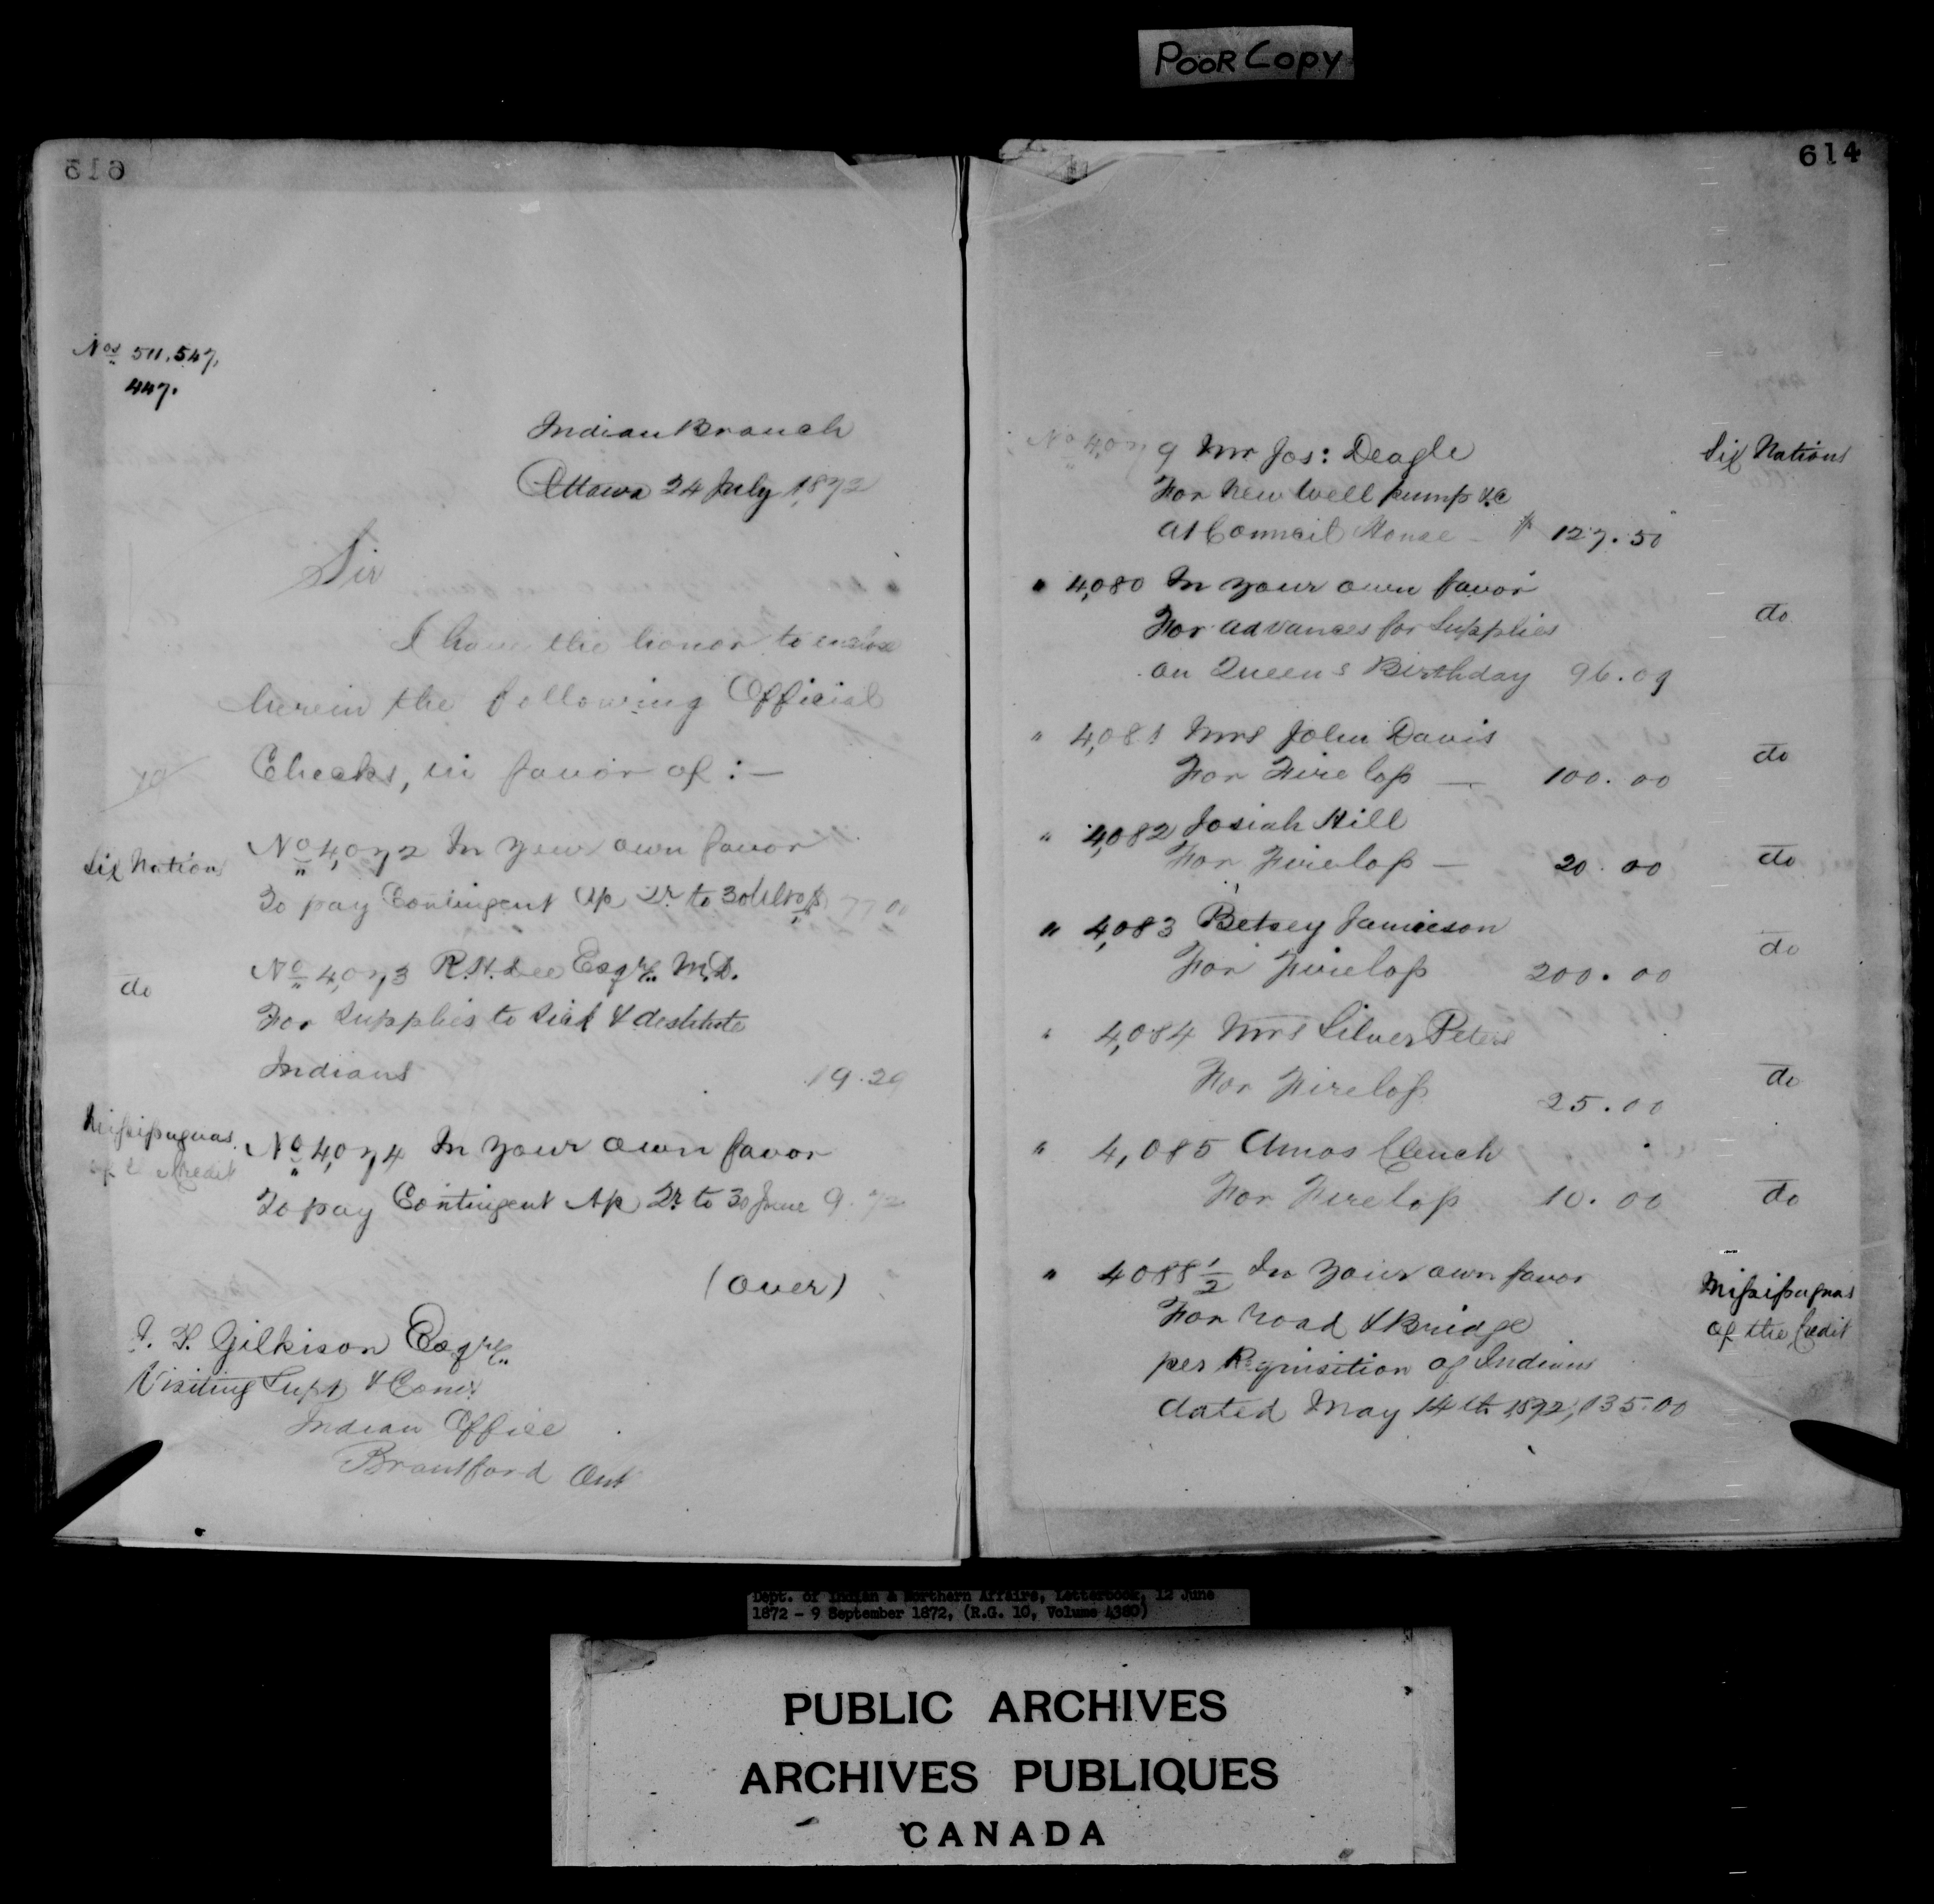 POOR COPY
613
Nos 511, 547,
447.
Indian Branch
Ottawa 24 July 1872
Sir
I have the honor to enclose
herein the following Official
Checks, in favor of :—
Six Nations
No 4,072 In your own favor
To pay Contingent A/c Qr to 30 Ulto $ 77 00
do
No 4,073 R. H. Dee Esqre. M.D.
For Supplies to Sick & destitute
Indians 19.29
Missisaguas
of the Credit
No 4,074 In your own favor
To pay Contingent A/c Qr to 30 June 9.72
(Over)
J. T. Gilkison Esqre.
Visiting Supt & Comr
Indian Office
Brantford Ont
614
No 4,079 Mr Jos: Deagle Six Nations
For New Well pump &c
at Council House – $ 127.50
" 4,080 In your own favor
For advances for Supplies do
on Queens Birthday 96.09
" 4,081 Mrs John Davis
For Fire loss — 100.00 do
" 4,082 Josiah Hill
For Fire loss — 20.00 do
" 4,083 Betsey Jamieson
For Fire loss 200.00 do
" 4,084 Mrs Silver Peters
For Fire loss 25.00 do
" 4,085 Amos Clench
For Fire loss 10.00 do
" 4088½ In your own favor Missisaguas
For Road & Bridge of the Credit
per Requisition of Indians
dated May 14th 1872, 135.00
Dept. of Indian & Northern Affairs, Letterbook, 12 June
1872 - 9 September 1872, (R.G. 10, Volume 4380)
PUBLIC ARCHIVES
ARCHIVES PUBLIQUES
CANADA